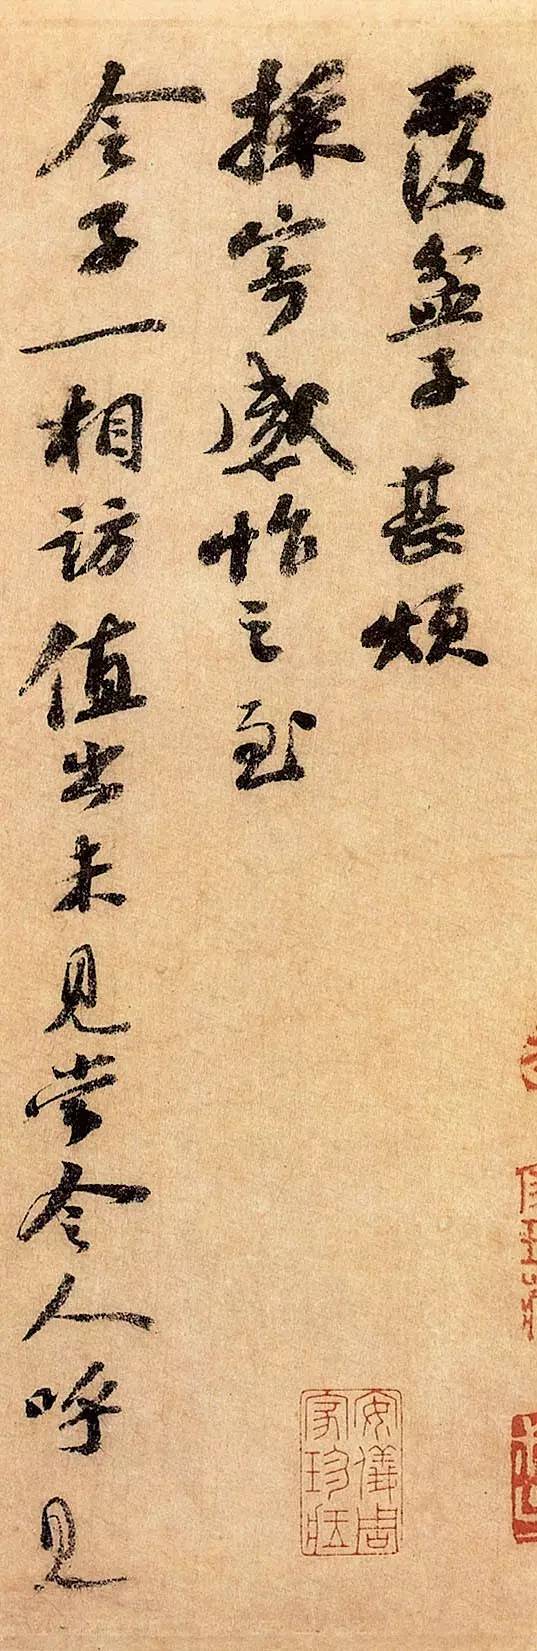 覆盆子甚煩
採寄感怍之至
令子一相訪值出未見當令人呼見
安儀周
家珍藏